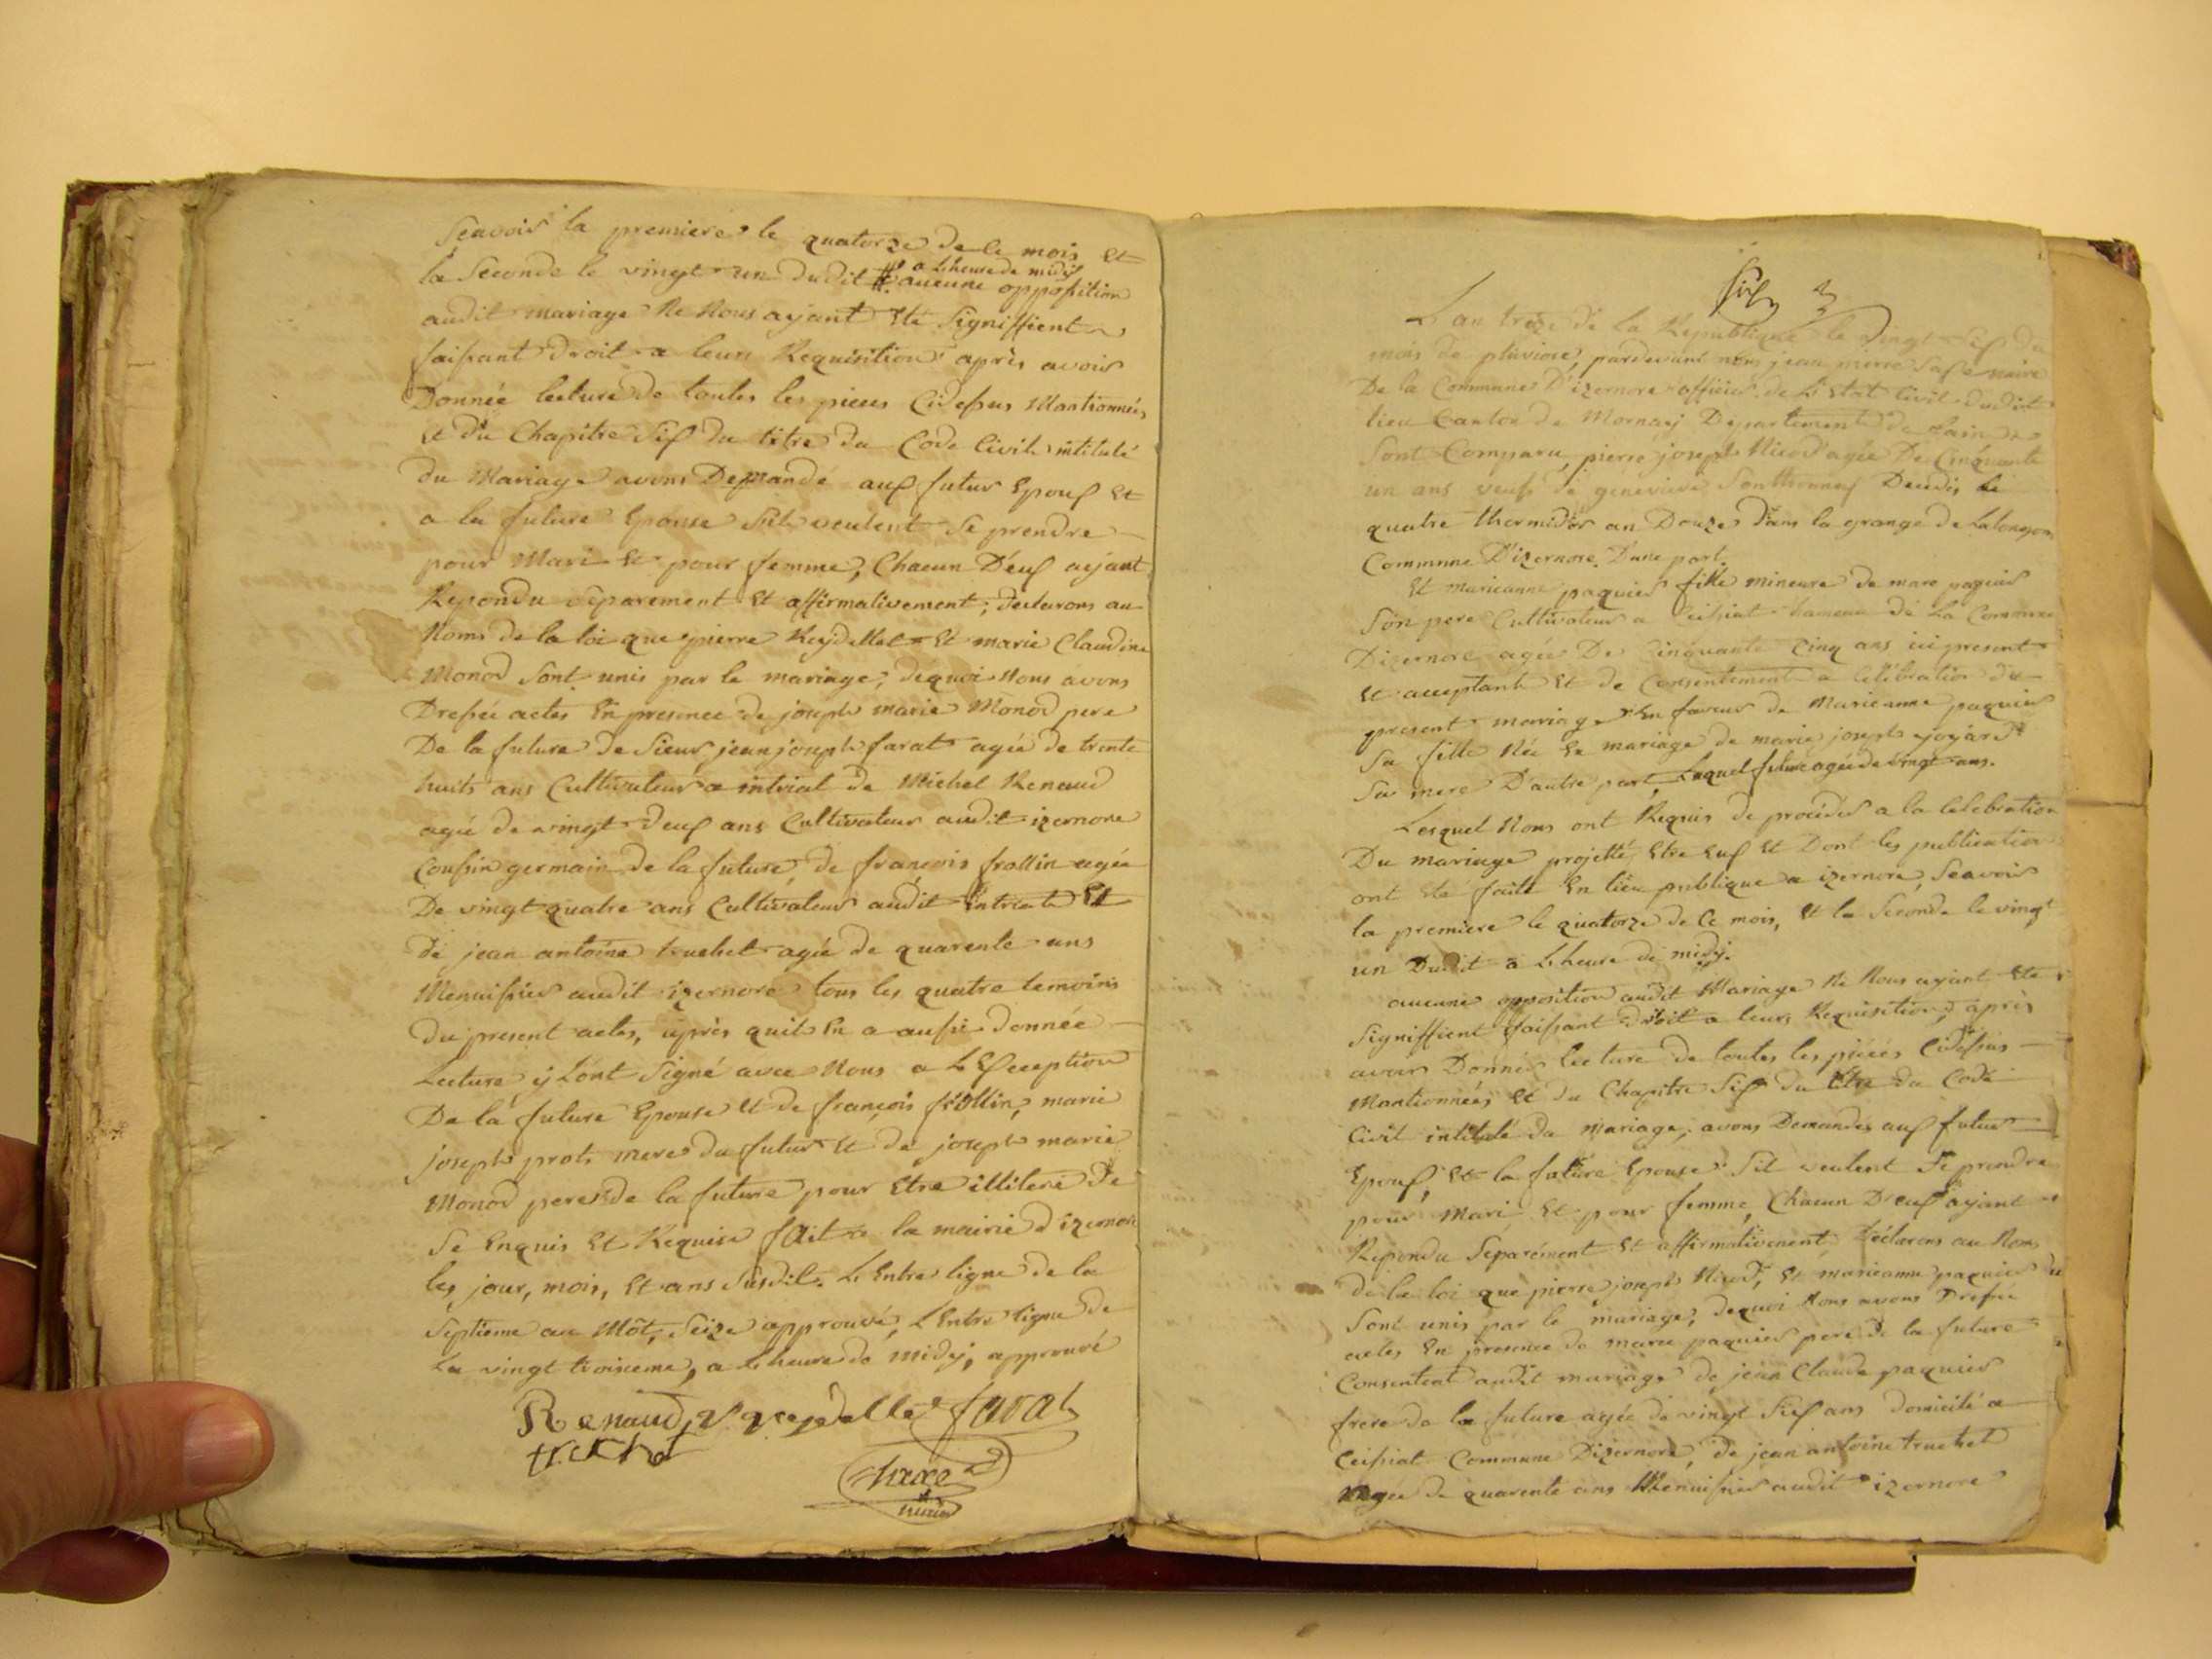 Scavoir la premiere le quatorze de Ce mois et
a Lheure de midy
la Seconde le vingt un dudit # aucune opposition
audit mariage Ne Nous ayant Eté Signiffient
faisant droit a leurs Requisition après avoir
Donnée lecture de toutes les pieces Cidessus Mantionnées
Et du Chapitre Six du titre du Code Civile intitulé
du Mariage avons Demandé aux futur Epoux Et
a la future Epouse S'ils veulent Se prendre
pour Mari Et pour femme, Chacun D'eux ayant
Repondu Séparement Et affirmativement; declarons au
Noms de la loi que pierre Reydellet Et marie Claudine
Monod Sont unis par le mariage; dequoi Nous avons
Dressée actes En presence de joseph marie Monod pere
De la future de Sieur jean joseph farat agée de trente
huits ans Cultivateur a intriat de Michel Renaud
agée de vingt deux ans Cultivateur audit izernore
Coussin germain de la future, de françois frollin agée
De vingt quatre ans Cultivateur audit Intriat Et
de jean antoine truchet agée de quarente ans
Menuisier audit izernore tous les quatre temoins
du present actes, après quils En a aussi donnée
Lecture, ij Lont Signé avec Nous a LException
De la future Epouse Et de françois frollin, marie
joseph prots mere du futur Et de joseph marie
Monod peres de la future pour Etre illiteré de
Se Enquis Et Requise fait a la mairie d izernore
les jour, mois, Et ans Susdit. LEntre ligne de la
Septieme au Môt, Seize approuvé, LEntre ligne de
La vingt troisieme, a Lheure de Midy, approuvé
Renaud reydellet farat
truchet
maire
Six
Lan treize de la Republique le vingt Six du
mois de pluviose, pardevant nous jean pierre maire
De la Commune D'izernore officier de LEtat Civil dudit
lieu Canton de Mornay Departement de Lain
Sont Comparu, pierre joseph Nicod agée De Cinquante
un ans veufs de genevieve Sonthonnax Décédés Le
quatre thermidor an Douze Dans la grange de Lalongon
Commune D'izernore D'une part.
Et marieanne paquier fille mineure de marc paquier
Son pere Cultivateur a Ceissiat hameau de La Commune
Dizernore agée De Cinquante Cinq ans ici present
Et acceptant Et de Consentement a Célébration du
present mariage En faveur de Marieanne paquier
Sa fille Née En mariage de marie joseph joyard
Sa mere D'autre part, Laquel future agée de vingt ans.
Lesquel Nous ont Requis de procéder a la Celebration
Du mariage projetté, Etre Eux Et Dont les publication
ont Eté faite En lieu publique a izernore, Scavoir
la premiere le quatorze de Ce mois, Et la Seconde le vingt
un Dudit a Lheure de midy.
aucune opposition audit Mariage Ne Nous ayant Eté
Signiffient faissant droit a leurs Requisition, après
avoir Donnée lecture de toutes les pièces Cidessus
Mantionnées Et du Chapitre Six du titre du Code
Civil intitulé du Mariage, avons Demandés aux futur
Epoux, Et la future Epouse Sil veulent Se prendre
pour Mari Et pour femme, Chacun D'eux ayant
Repondu Séparément Et affirmativement, Déclarons au Nom
de la loi que pierre joseph Nicod, Et marieanne paquier
Sont unis par le mariage; dequoi Nous avons Dressée
actes En presence de marc paquier pere de la future
Consentent audit mariage de jean Claude paquier
frere de la future agée de vingt Six ans domicilé a
Ceissiat Commune Dizernore, de jean antoine truchet
agee de quarente ans Menuisier audit izernore